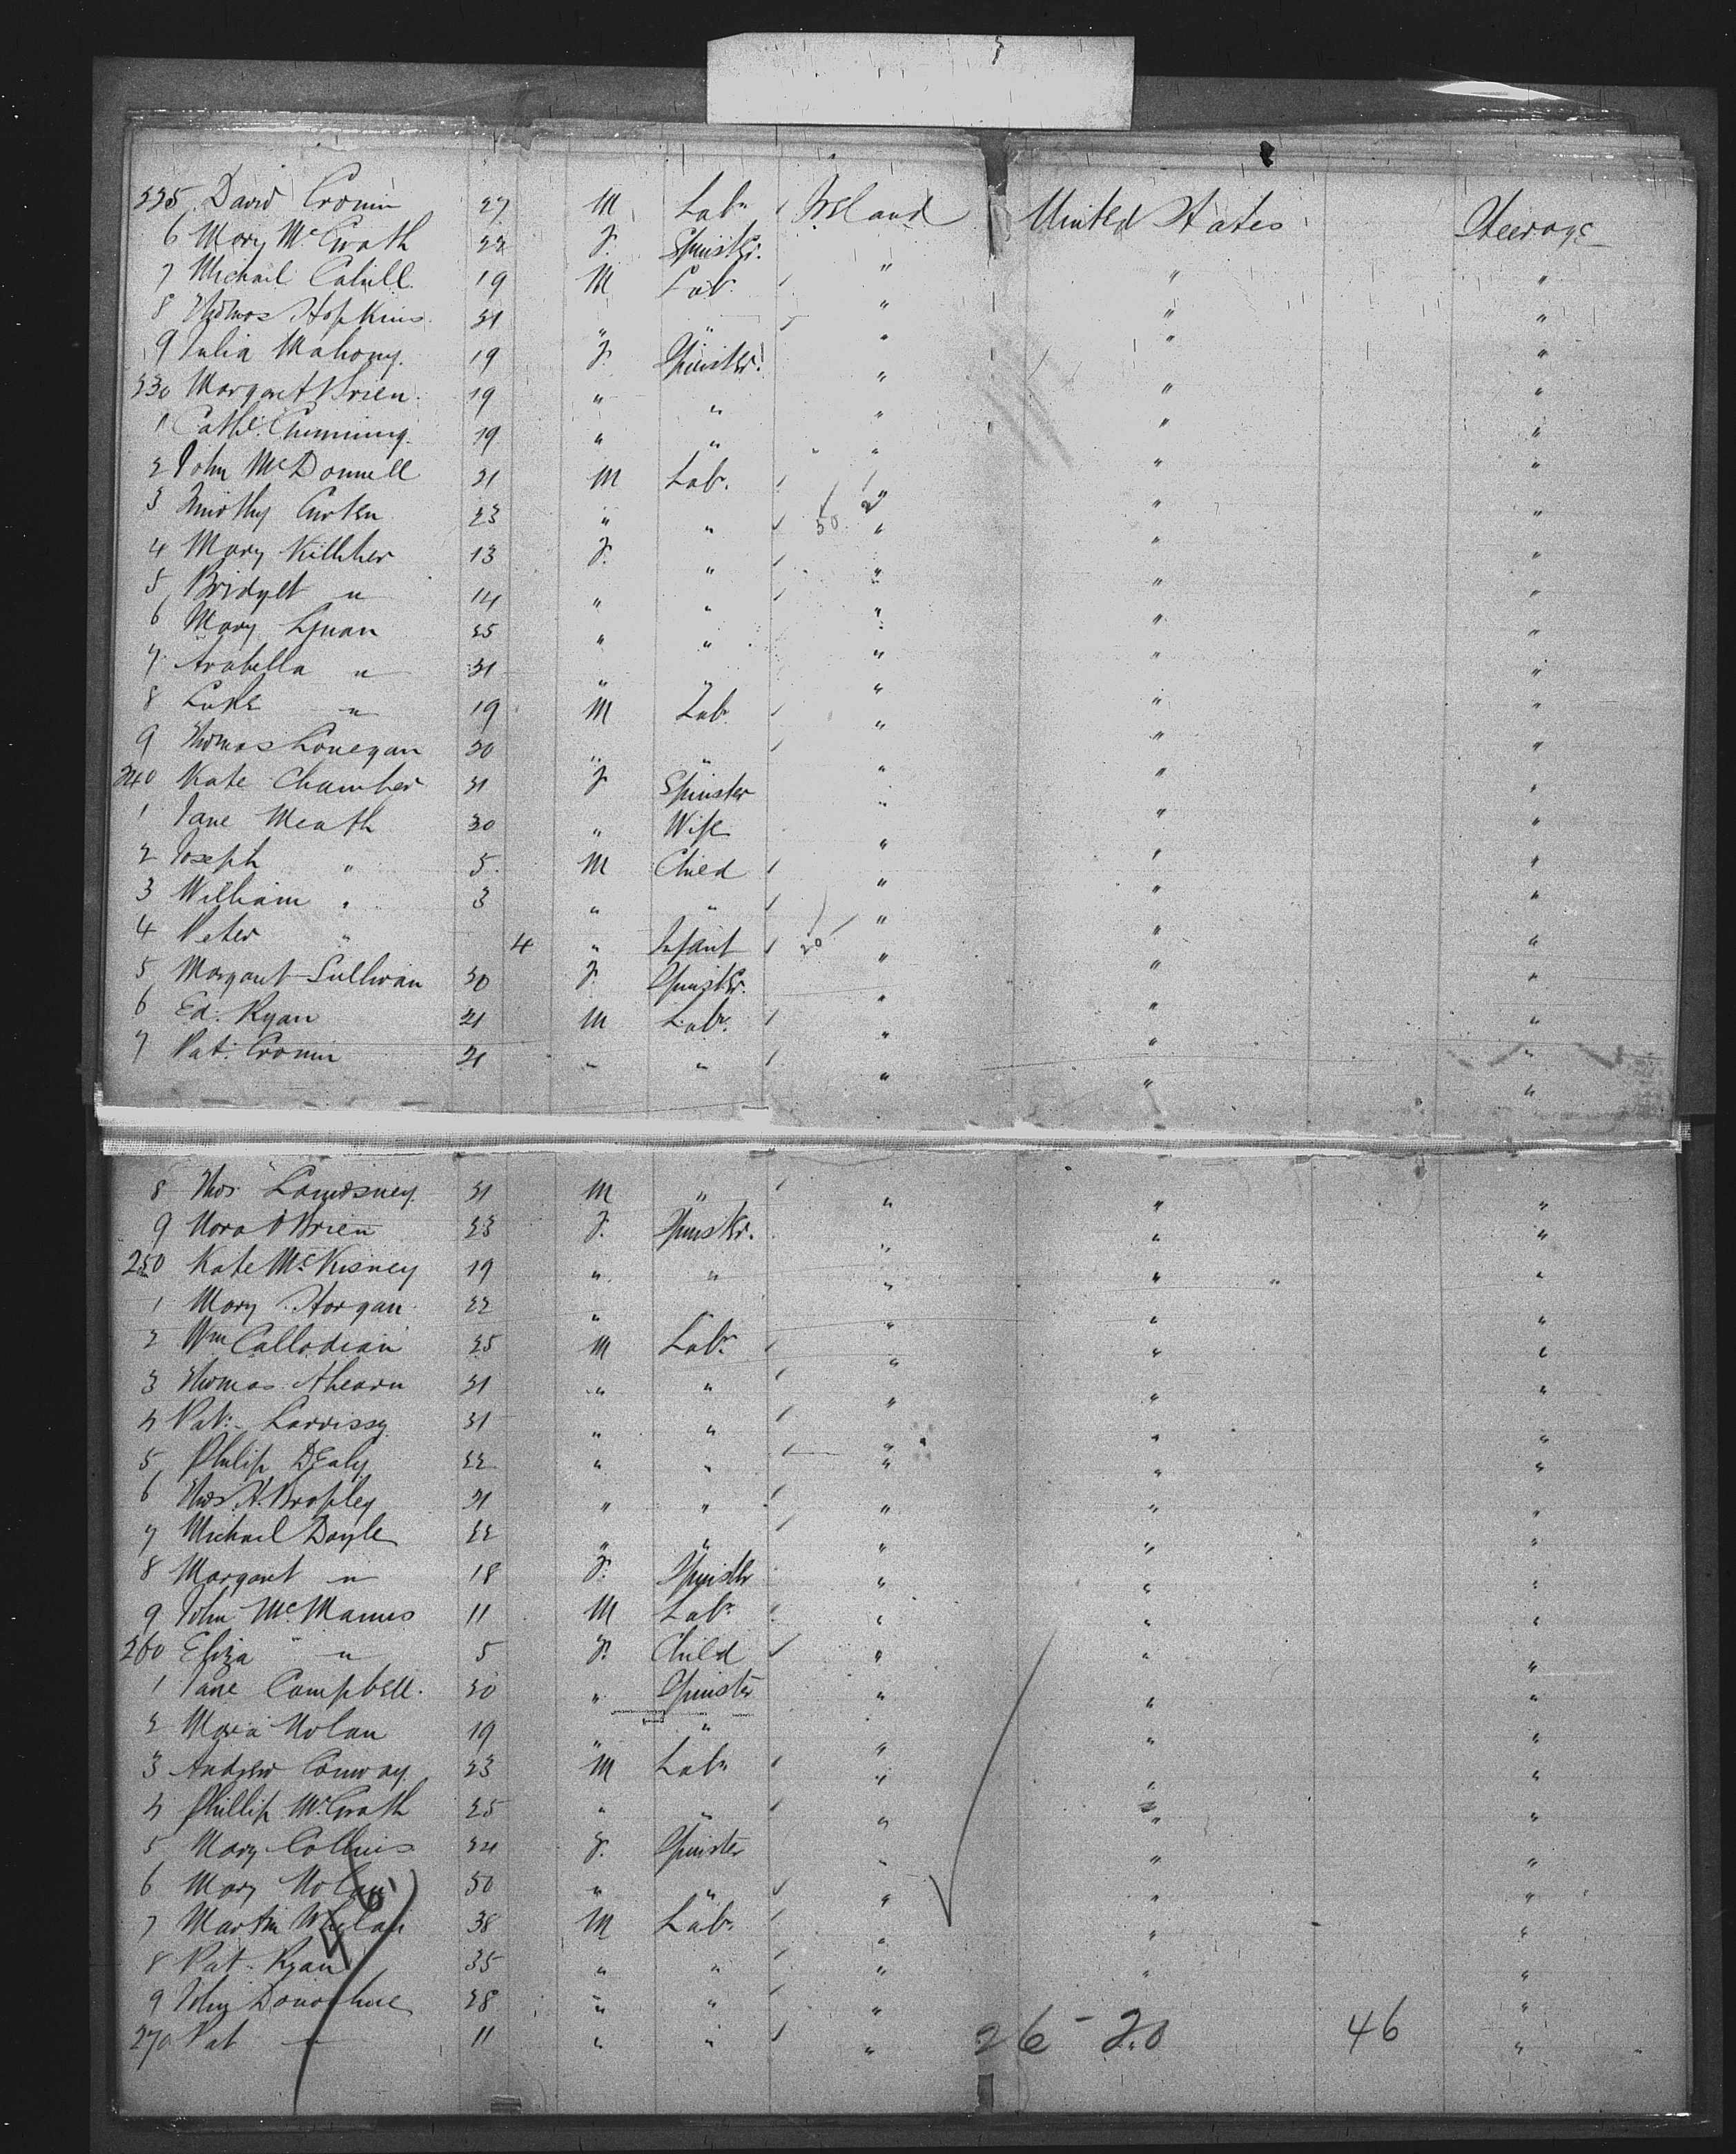 225 David Cronin 27 M Labr Ireland United States Steerage
6 Mary McGrath 22 F. Spinster. " " "
7 Michael Cahill. 19 M Labr " " "
8 Thomas Hopkins. 21 " " " " "
9 Julia Mahony. 19 F. Spinster. " " "
230 Margaret OBrien. 19 " " " " "
1 Cathe. Cumming. 19 " " " " "
2 John McDonnell 21 M Labr. " " "
3 Timothy Curten 23 " " " " "
4 Mary Killiher 13 F. " " " "
5 Bridget " 14 " " " " "
6 Mary 25 " " " " "
7 Arabella " 21 " " " " "
8 Luke " 19 M Labr " " "
9 Thomas Lonegan 20 " " " " "
240 Kate Chamber 21 F Spinster " " "
1 Jane Meath 30 " Wife " " "
2 Joseph " 5 M Child " " "
3 William " 3 " " " " "
4 Peter " 4 " Infant 20 " " "
5 Margaret Sullivan 30 F. Spinster. " " "
6 Ed. Ryan 21 M Labr. " " "
7 Pat. Cronin 21 " " " " "
8 Thos. 21 M " " " "
9 Nora OBrien 23 F. Spinster. " " "
250 Kate McKisney 19 " " " " "
1 Mary Horgan. 22 " " " "
2 Wm 25 M Labr " " "
3 Thomas Ahearn 21 " " " " "
4 Pat. Larrissy 21 " " " " "
5 Philip Dealy 22 " " " " "
6 Thos. H. Brophey 21 " " " " "
7 Michael Doyle 22 " " " " "
8 Margaret " 18 F. Spinster " " "
9 John McManus 11 M Labr " " "
260 Eliza " 5 F. Child " " "
1 Jane Campbell. 30 " Spinster " " "
2 Maria Nolan 19 " " " " "
3 Andrew Conway. 23 M Labr " " "
4 Phillip McGrath 25 " " " " "
5 Mary Collins 24 F. Spinster " " "
6 Mary Nolan 50 " " " " "
7 Martin Whelan 38 M Labr " " "
8 Pat. Ryan 35 " " " " "
9 John Donoghue 28 " " " " "
270 Pat " 11 " " " " "
26 - 20 46